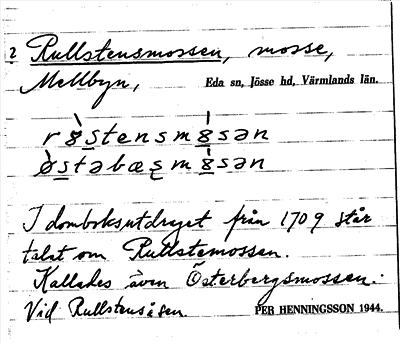 2 Rullstensmossen, mosse,
Mellbyn, Eda sn, Jösse hd, Värmlands län.
r ȣ̀ s̲tensmȣ̲́sən
ø̀s̲təbæʂmȣ̲́sən
I domboksutdraget från 1709 står
talat om Rullstemossen.
Kallades även Österbergsmossen.
Vid Rullstensåsen. PER HENNINGSSON 1944.